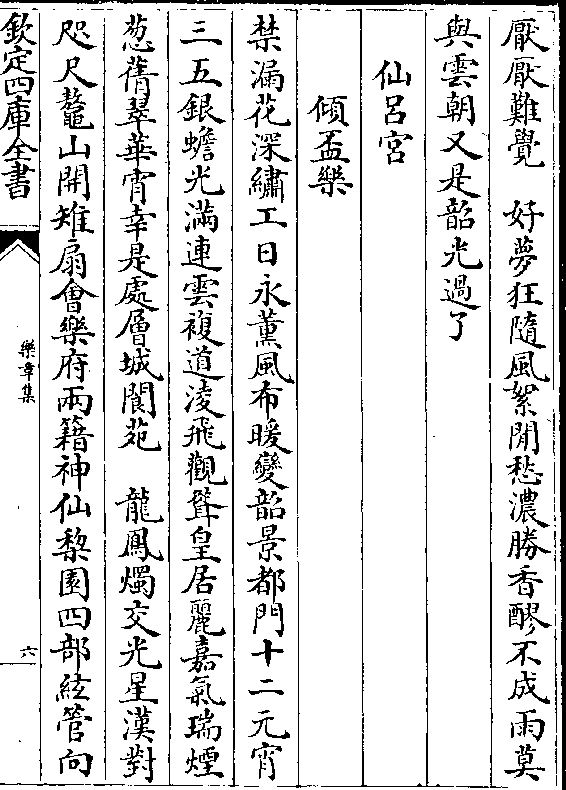 厭厭難覺　好夢狂隨風絮閒愁濃勝香醪不成雨莫
與雲朝又是韶光過了
仙呂宮
傾盃樂
禁漏花深繡工日永薰風布暖變韶景都門十二元宵
三五銀蟾光滿連雲複道淩飛觀聳皇居麗嘉氣瑞煙
葱蒨翠華宵幸是處層城閬苑　龍鳳燭交光星漢對
咫尺鼇山開雉扇會樂府兩籍神仙棃園四部絃管向
欽定四庫全書
樂章集
六